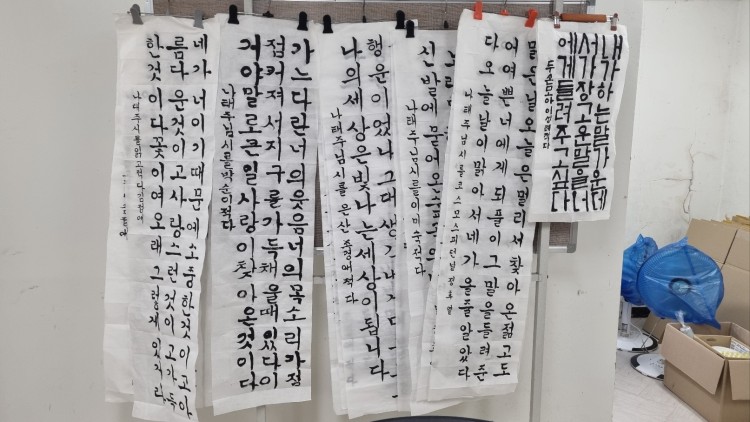 내가하는말가운데
서가장고운말을너
에게들려주고싶다
맑은날오늘은멀리서찾아온젊고도
어여쁜너에게되풀이그말을들려준
다오늘날이맑아서네가올줄알았다
나태주님시를코스모스피던날
신발에묻어온
나태주님시를이미숙적다
행운이었나그대생각나
나의세상은빛나는세상이됩니다
나태주님시를은산주경애적다
가느다란너의웃음너의목소리가점
점커져서지구를가득채울때있다이
거야말로큰일사랑이찾아온것이다
나태주님시를박순이적다
네가너이기때문에소중한것이고아
름다운것이고사랑스런것이고가득
한것이다꽃이여오래그렇게있거라
나태주시